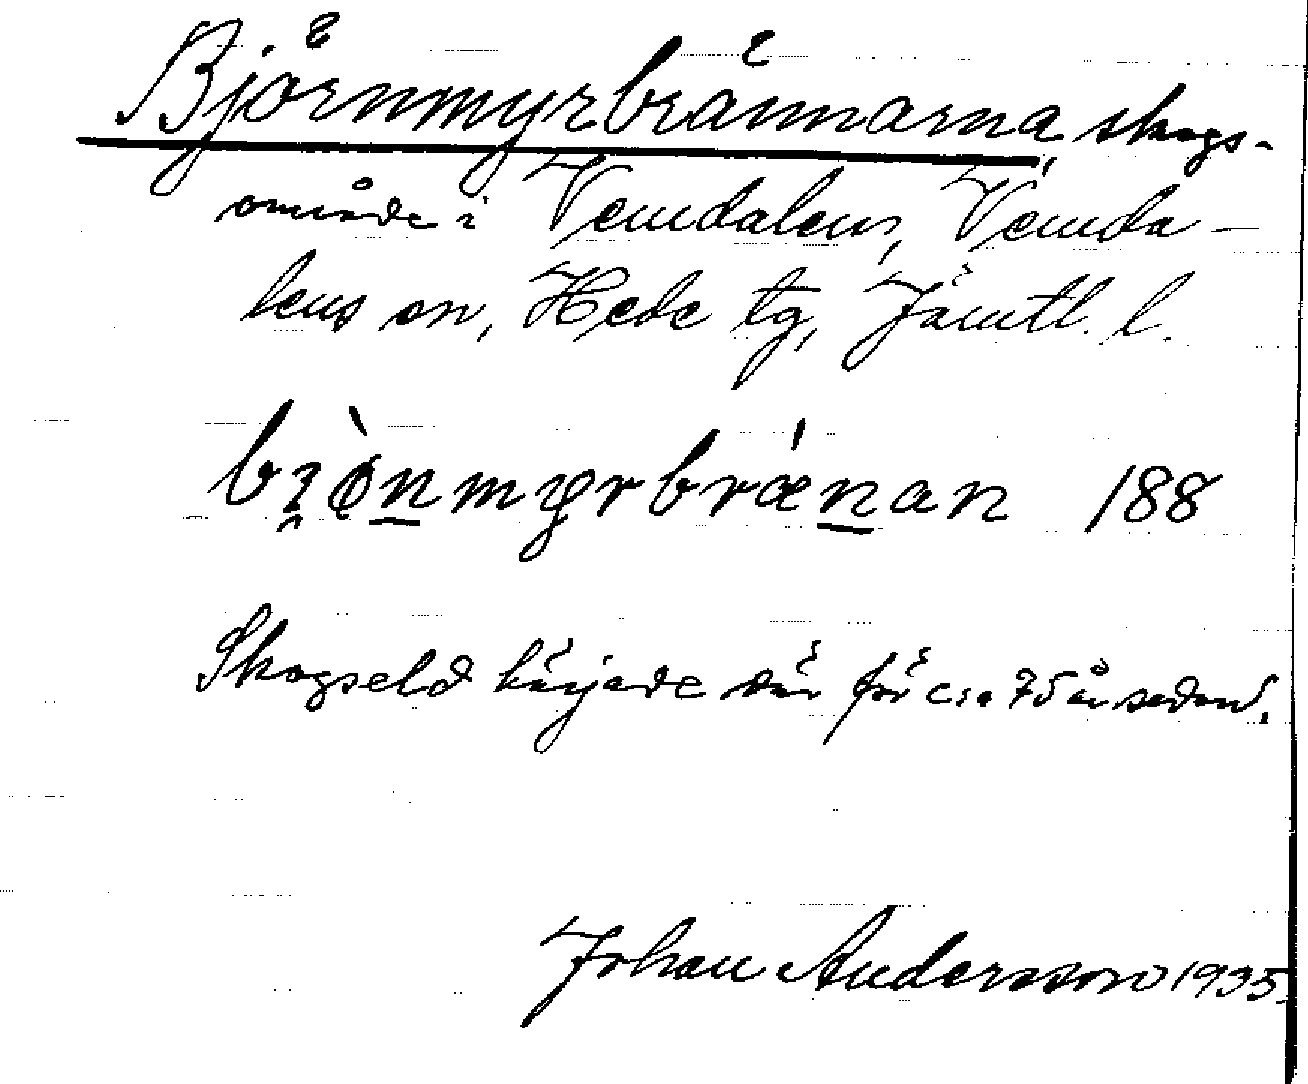 Björnmyrbrännarna, skogs-
område i Vemdalens, Vemda-
lens sn, Hede tg, Jämtl. l.
bi̯ǫ̀n̲myrbrǽn̲an 188
Skogseld härjade där för c:a 75 år sedan.
Johan Andersson 1935.